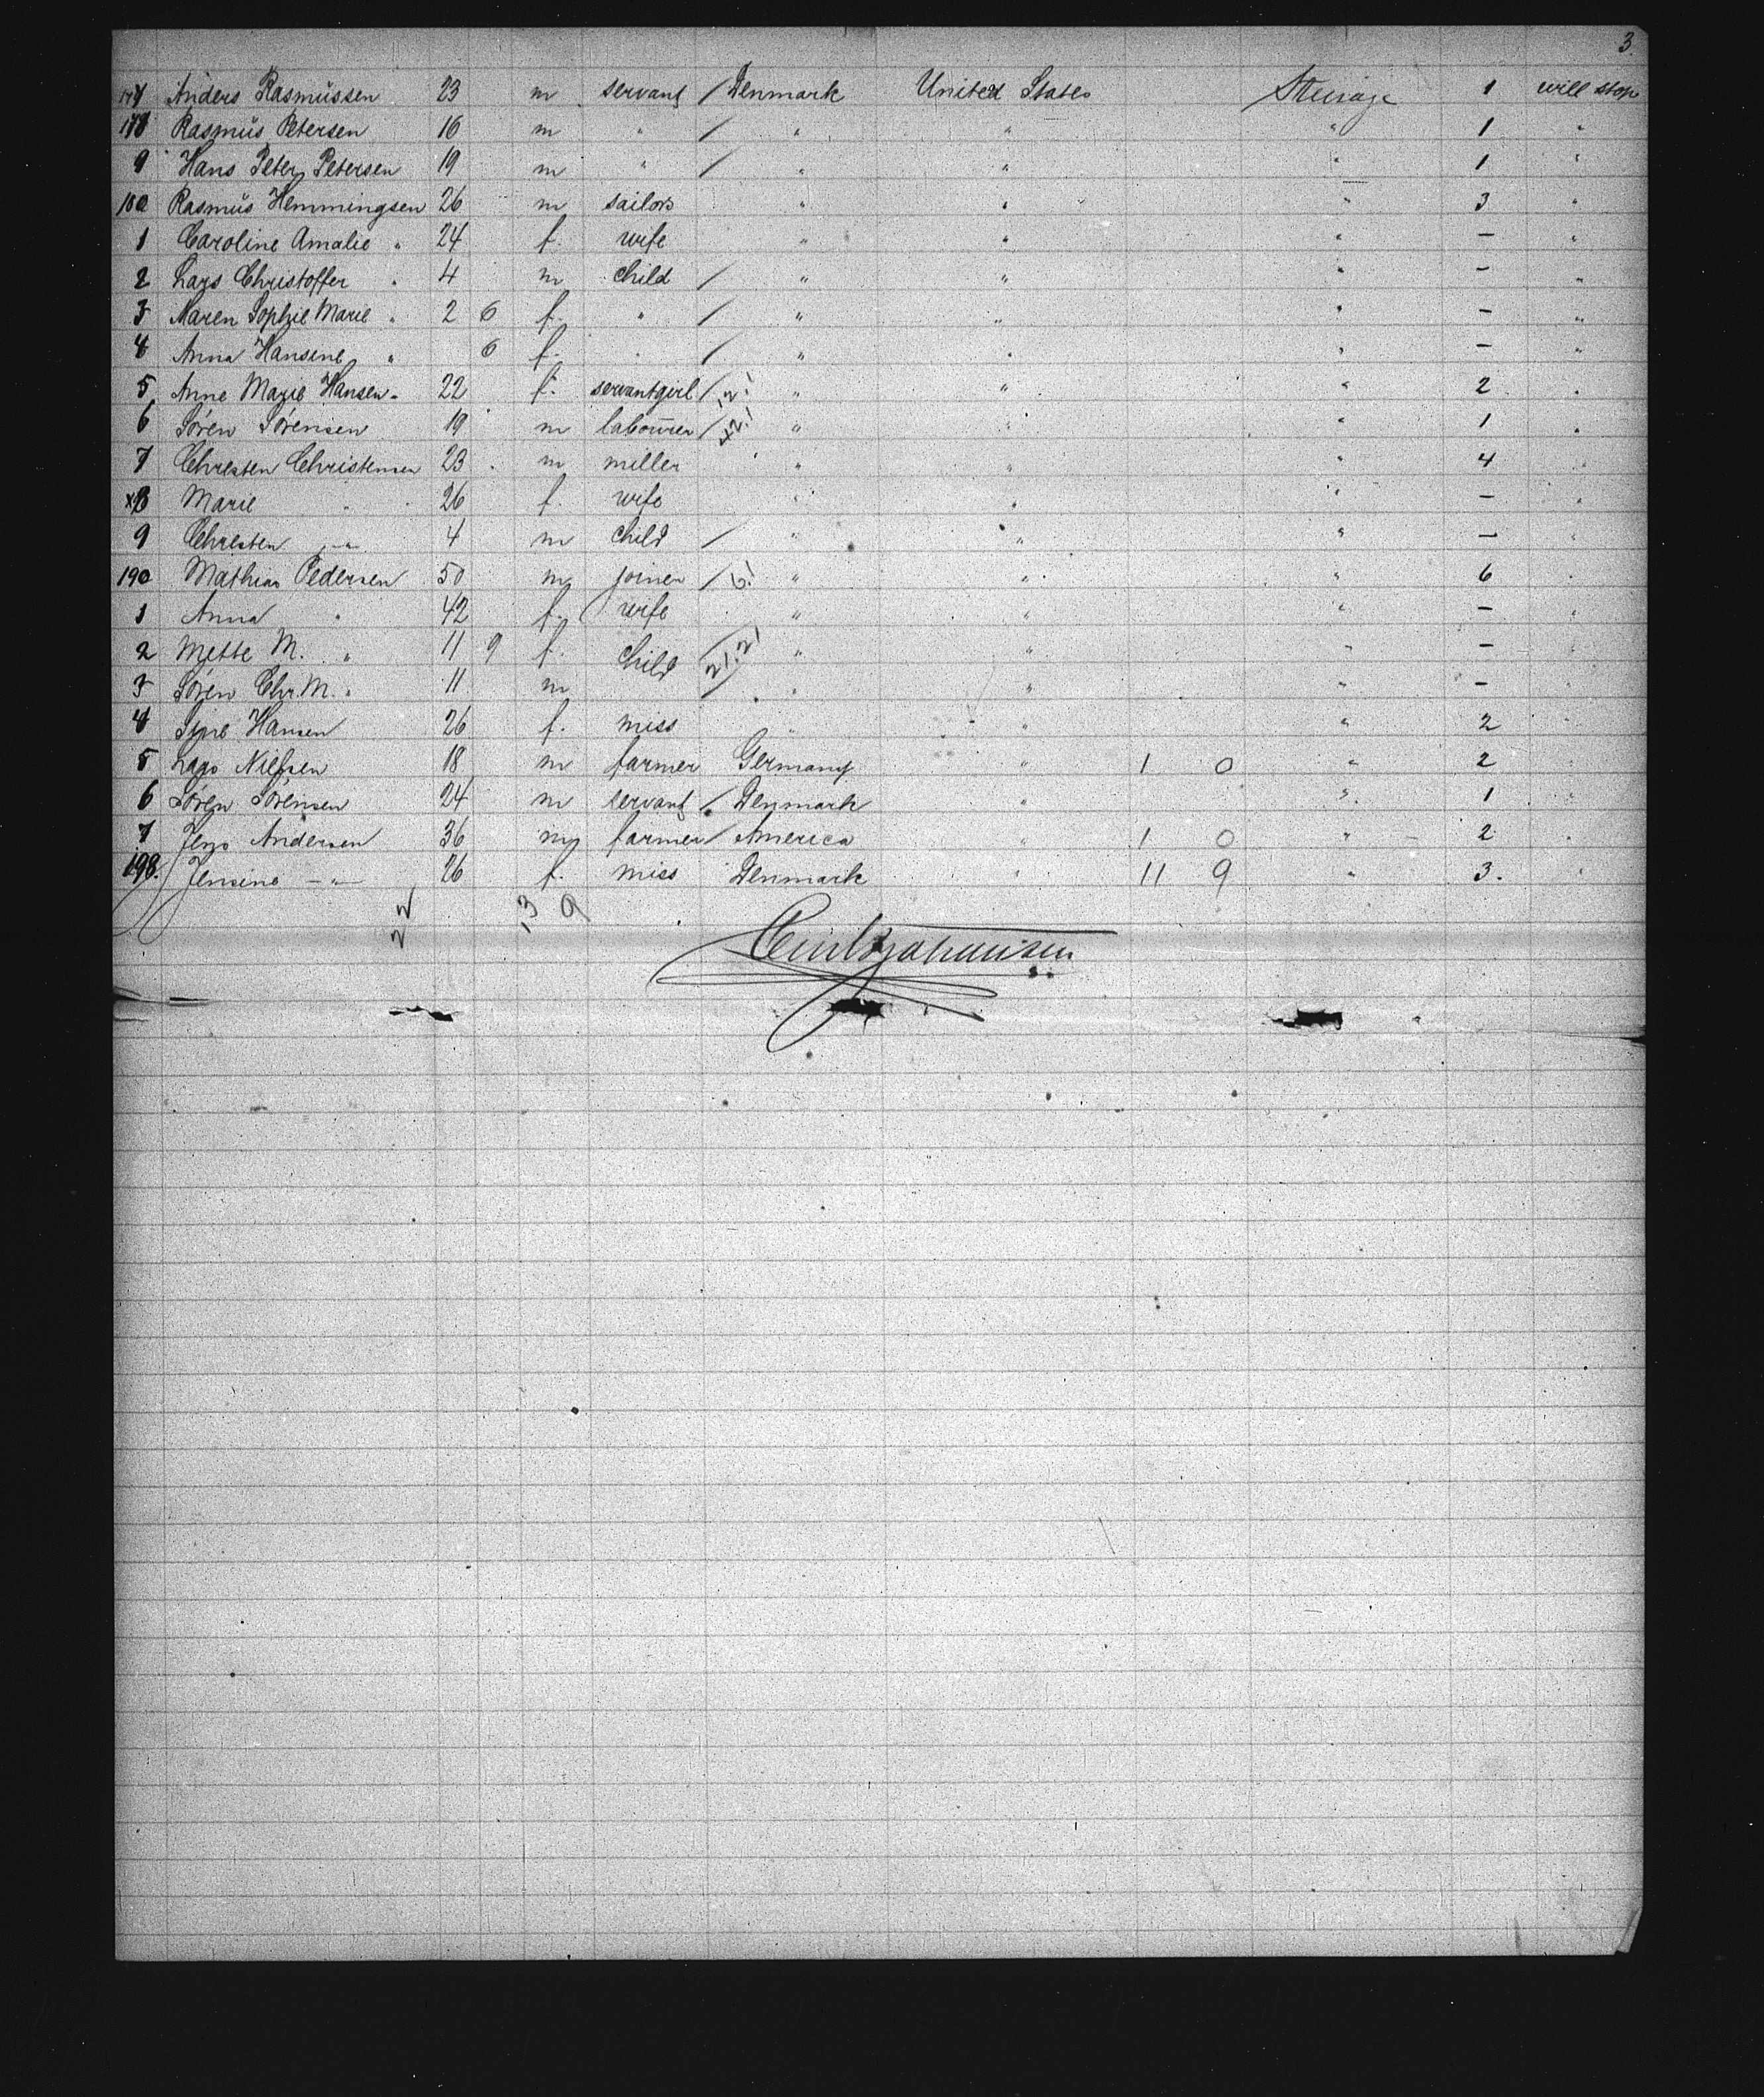 3.
177 Anders Rasmüssen 23 m servant / Denmark United States Steerage 1 will stop
178 Rasmüs Petersen 16 m " / " " " 1 "
9 Hans Peter Petersen 19 m " / " " " 1 "
180 Rasmüs Hemmingsen 26 m sailors " " " 3 "
1 Caroline Amalie " 24 f. wife " " " — "
2 Lars Christoffer " 4 m child / " " " — "
3 Maren Sophie Marie " 2 6 f. " / " " " — "
4 Anna Hansine " 6 f. " / " " " — "
5 Anne Marie Hansen 22 f. servantgirl / " " " 2 "
6 Sören Sörensen 19 m laboürer / " " " 1 "
7 Chresten Christensen 23 m miller " " " 4 "
x8 Marie " 26 f. wife " " " — "
9 Chresten " 4 m child / " " " — "
190 Mathias Pedersen 50 m joiner / " " " 6 "
1 Anna " 42 f. wife " " " — "
2 Mette M. " 11 9 f. child " " " — "
3 Sören Chr. M. " 11 m " " " — "
4 Sine Hansen 26 f. miss " " " 2 "
5 Lago Nielsen 18 m farmer Germany " 1 0 " 2 "
6 Sören Sörensen 24 m servant / Denmark " " 1 "
7 Jens Andersen 36 m farmer / America " 1 0 " 2 "
198. Jensine —"— 26 f. miss Denmark " 11 9 " 3. "
22 13 9